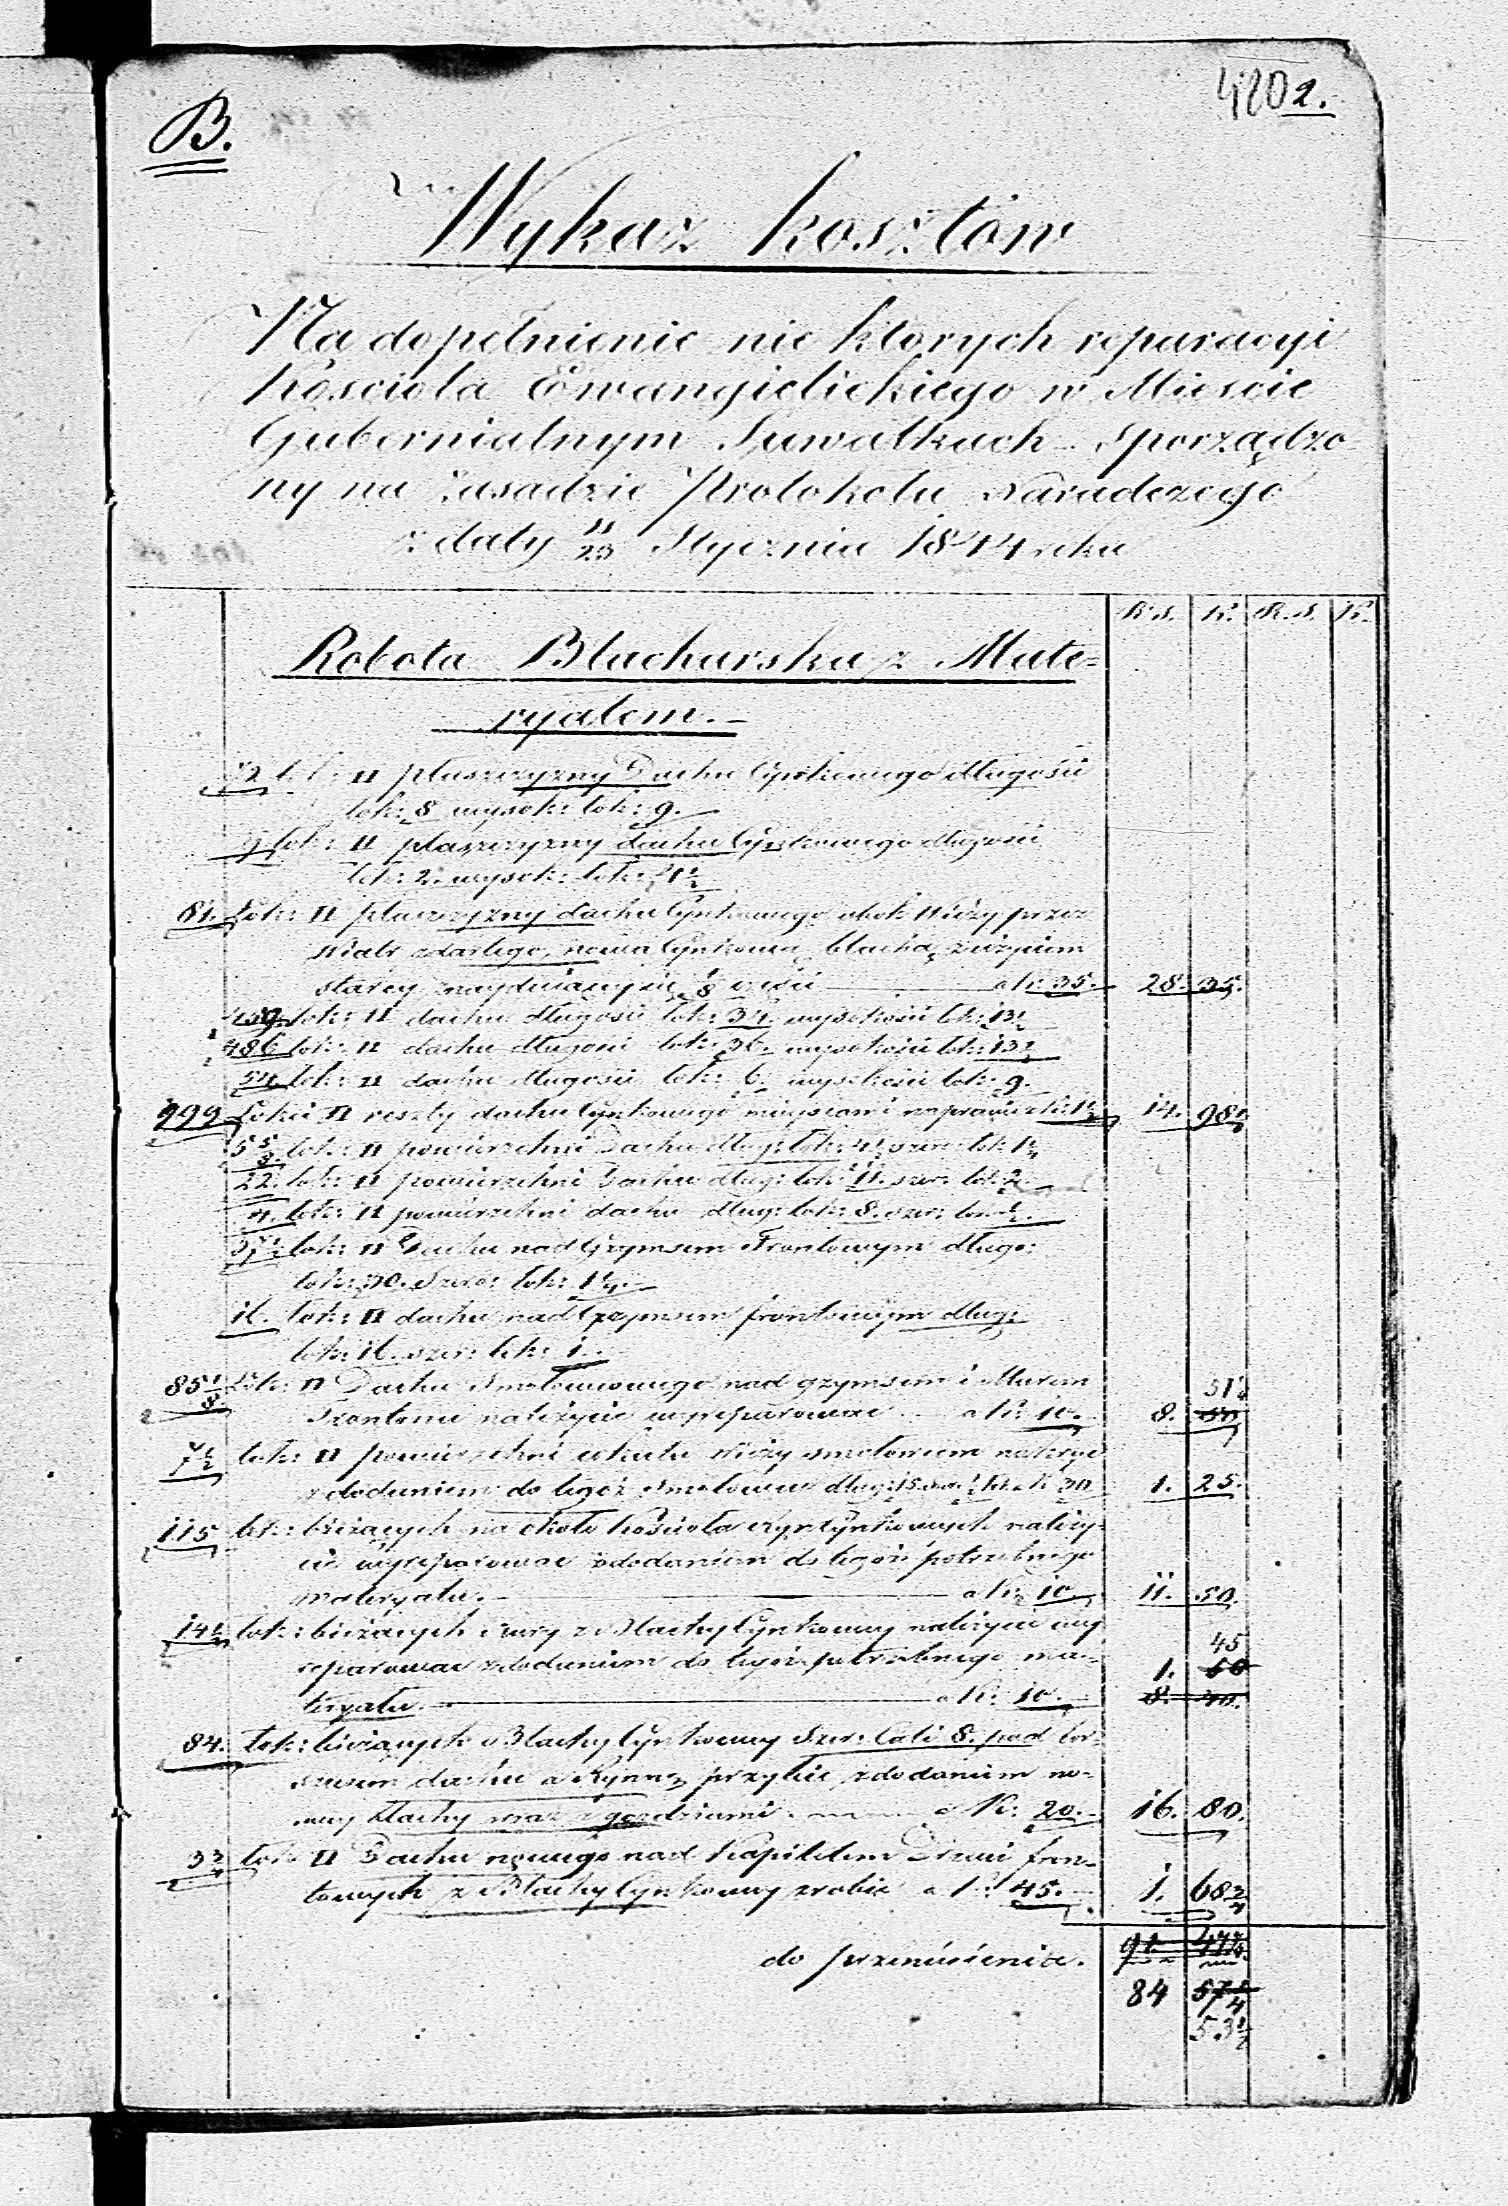 4202.
B.
Wykaz kosztów
Na dopełnienie nie ktorych reparacyi
Kościoła Ewangielickiego w Mieście
Gubernialnym Suwałkach Sporządzo
ny na zasadzie Protokołu Naradczego
z daty 11/23 Stycznia 1844 roku
R.S. K. R.S. K.
Robota Blacharska z Mate=
ryałem.
72 łok: □ płaszczyzny Dachu Cynkowego długości
łok: 8 wysok: łok: 9.
9 łok: □ płaszczyzny dachu Cynkowego długości
łok: 2. wysok: łok: 4½
81. Łok: □ płaszczyzny dachu Cynkowego obok Wieży przez
Wiatr zdartego, nową Cynkową blachą z użyciem
starey znayduiącey się ⅛ części a K: 35. 28. 35.
459 łok: □ dachu długości łok: 34. wysokości łok: 13½
486 łok: □ dachu długości łok: 36. wysokości łok: 13½
54 łok: □ dachu długości łok: 6. wysokości łok: 9.
999 Łokci □ reszty dachu Cynkowego mieyscami naprawić a K: 1½ 14. 98½
5⅝ łok: □ powierzchni Dachu dług: łok: 4½ szer: łok: 1¼
22. łok: □ powierzchni Dachu dług: łok: 11. szer: łok: 2.
4. łok: □ powierzchni dachu dług: łok: 8. szer: łok: ½.
37½ łok: □ Dachu nad Gzymsem Frontowym długo:
łok: 30. Szer: łok: 1¼.
16. łok: □ dachu nad Gzymsem frontowym dług:
łok: 16. szer: łok: 1.
85⅛ Łok: □ Dachu nad gzymsem i Murem
Frontonu należycie wyreparować a K: 10. 8. 51¼
50
7½ łok: □ powierzchni Wieży
z dodaniem do tegoż dług: 15. szer: ½ łok. a K 30 1. 25.
115 łok: bieżących na około Kościoła Cynkowych należy-
cie wyreparować z dodaniem do tegoż potrzebnego
materyału. a K: 10 11. 50.
14½ łok: bieżących rury z Blachy Cynkowey należycie wy
reparować z dodaniem do tegoż potrzebnego ma-
teryału. a K: 10. 1. 45
50
8. 40.
84. łok: bieżących Blachy Cynkowey Szer: Cali 8. pod
dachu a Rynnę przybić z dodaniem no-
wey blachy wraz z gozdziami. a K: 20. 16. 80.
3¾ łok: □ Dachu nowego nad Kapitelem Drzwi fron-
towych z Blachy Cynkowey zrobić a K: 45. 1. 68¾
do przeniesienia. 91 47¾
84 57¼
53½